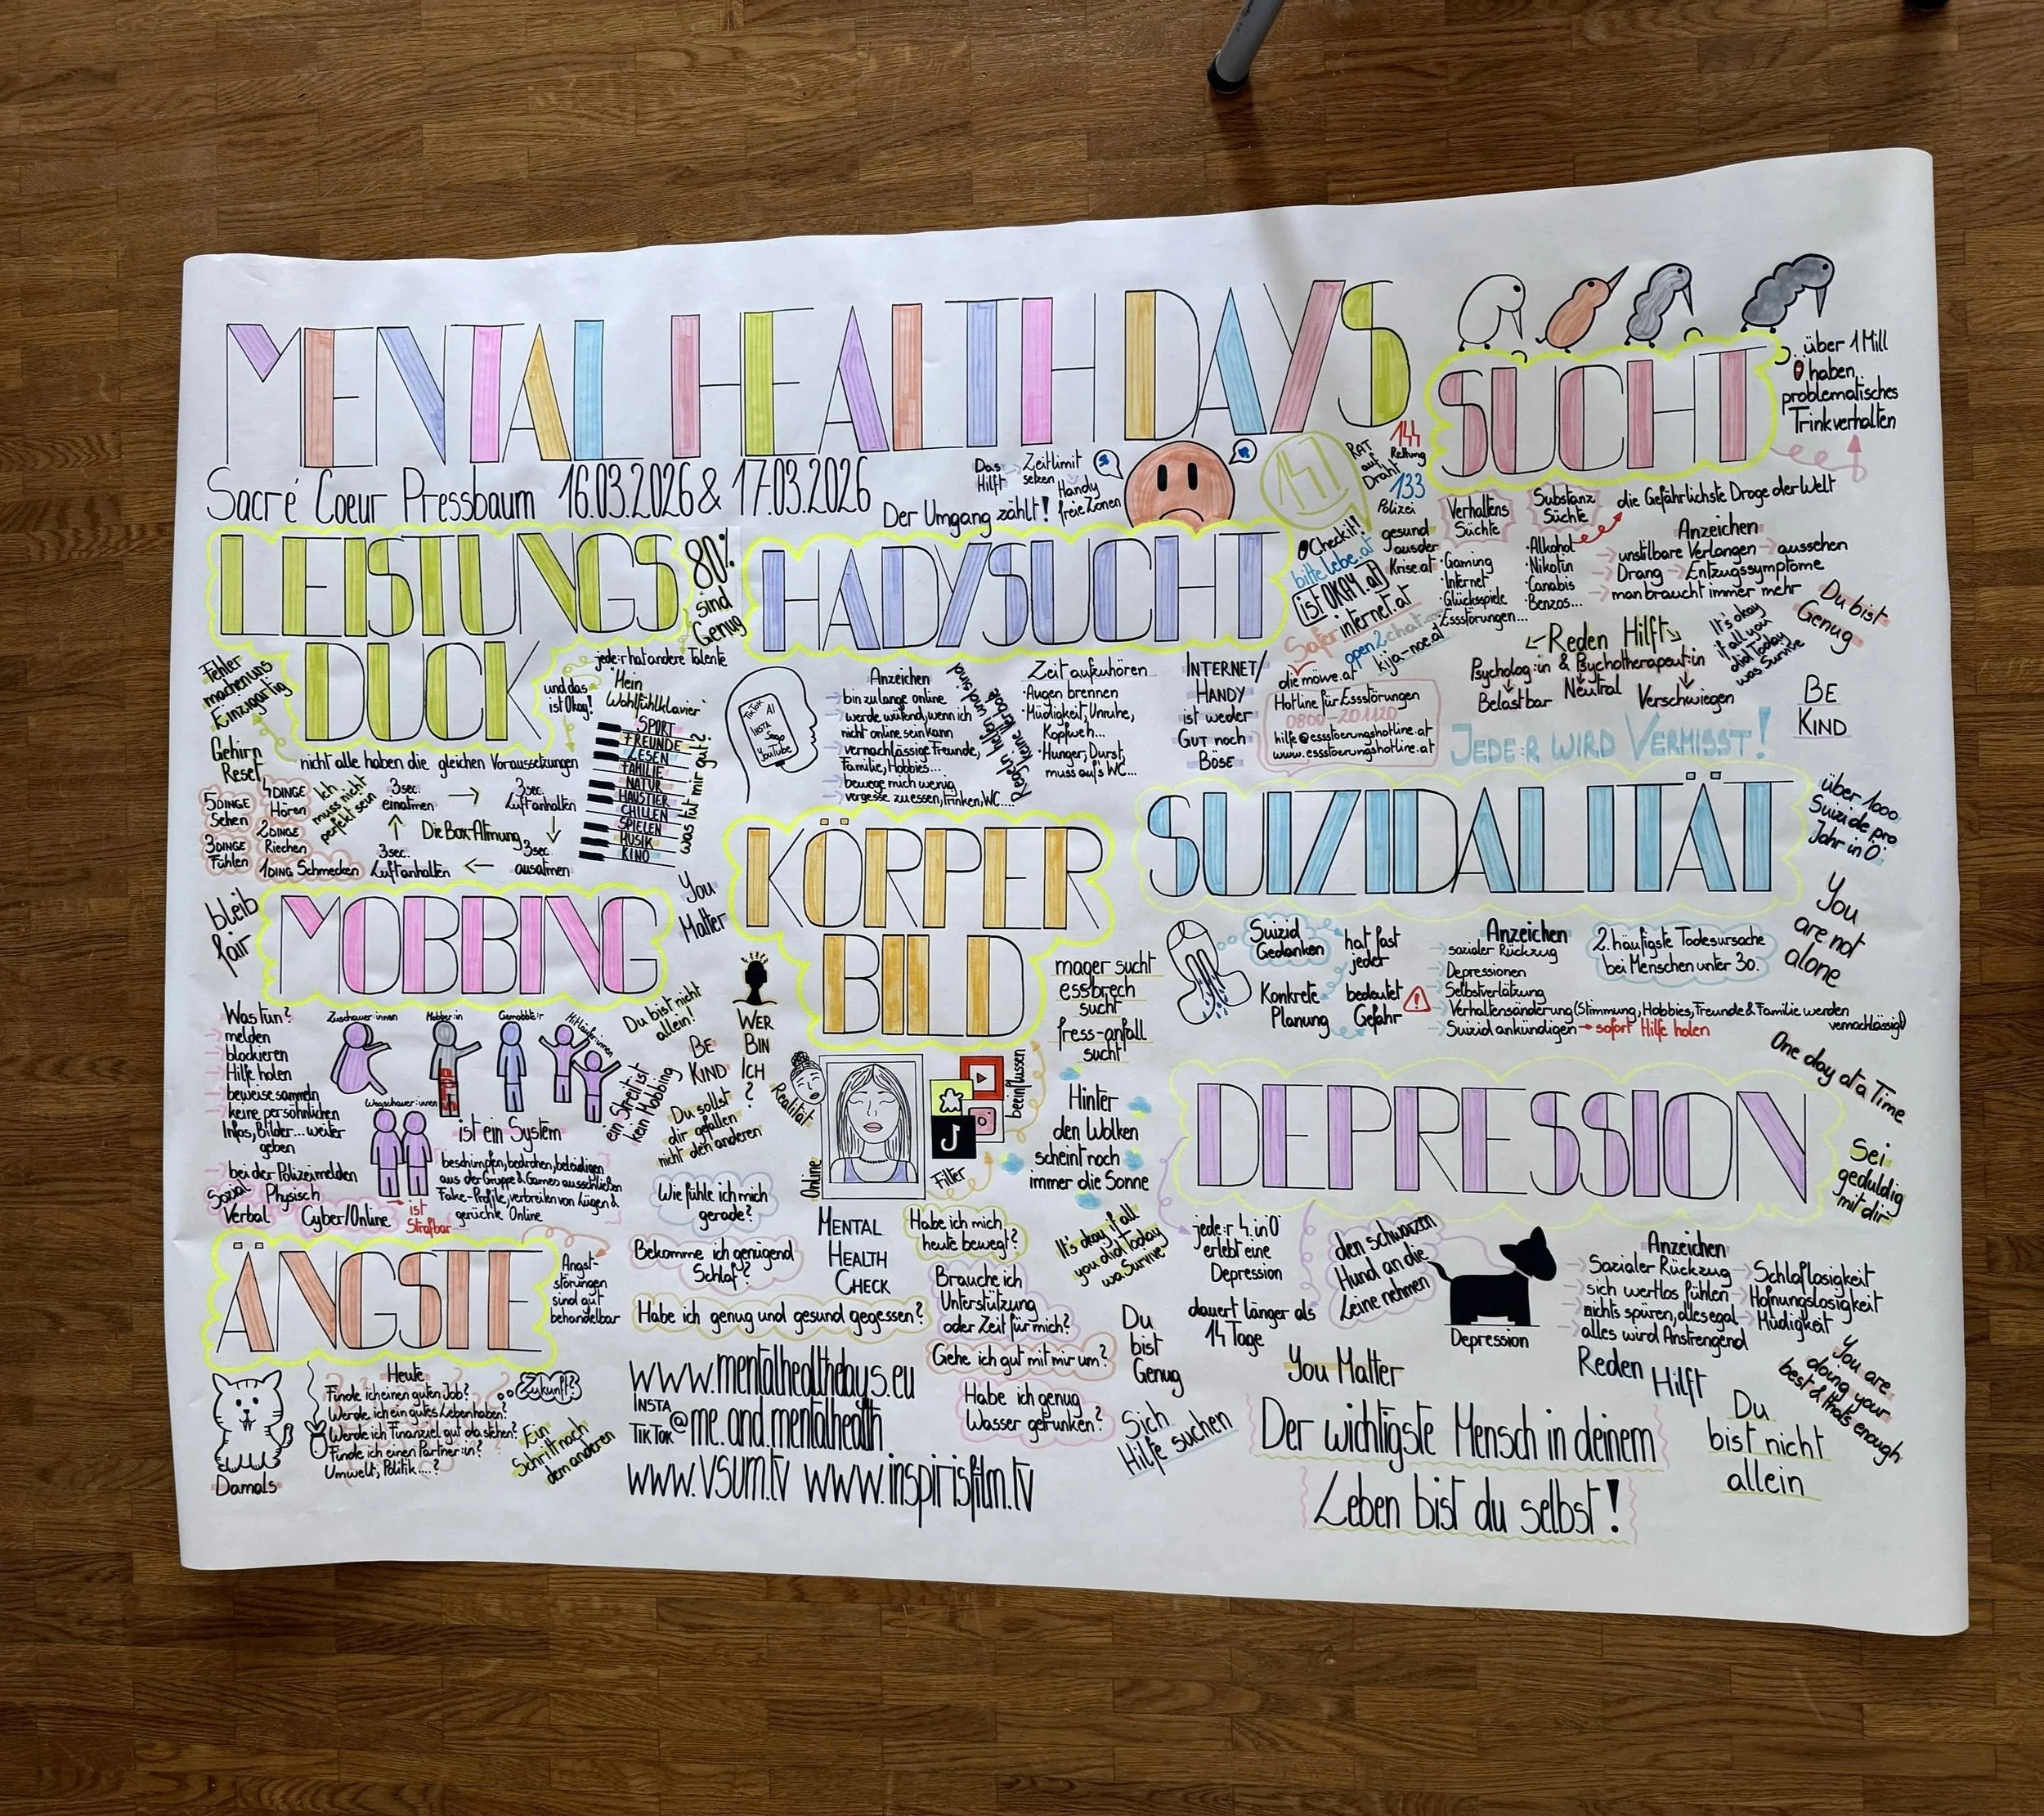 MENTAL HEALTH DAYS
Sacré Coeur Pressbaum 16.03.2026 & 17.03.2026
Das Hilft
Zeitlimit setzen
Handy freie Zonen
Der Umgang zählt!
147
RAT auf Draht
144
Rettung
133
Polizei
SUCHT
über 1 Mill
Ö haben
problematisches
Trinkverhalten
Verhaltens
Süchte
Substanz
Süchte
die Gefährlichste Droge der Welt
·Gaming
·Internet
·Glücksspiele
·Essstörungen...
·Alkohol
·Nikotin
·Canabis
·Benzos...
Anzeichen
unstilbare Verlangen → aussehen
Drang → Entzugssymptome
man braucht immer mehr
Du bist
Genug
Reden Hilft
Psycholog:in & Psychotherapeut:in
Belastbar
Neutral
Verschwiegen
It's okay
if all you
did Today
was Survive
BE
KIND
JEDE:R WIRD VERMISST!
LEISTUNGS
DUCK
80%
sind
Genug
Fehler
machen uns
Einzigartig
jede:r hat andere Talente
und das
ist Okay!
nicht alle haben die gleichen Voraussetzungen
Gehirn
Reset
5 DINGE
Sehen
4 DINGE
Hören
3 DINGE
Fühlen
2 DINGE
Riechen
1 DING Schmecken
Ich
muss nicht
perfekt sein
3 sec.
einatmen
3 sec.
Luft anhalten
Die Box-Atmung
3 sec.
Luft anhalten
3 sec.
ausatmen
"Mein
Wohlfühlklavier"
SPORT
FREUNDE
LESEN
FAMILIE
NATUR
HAUSTIER
CHILLEN
SPIELEN
MUSIK
KINO
was tut mir gut?
HADYSUCHT
TikTok
AI
INSTA
Snap
YouTube
Anzeichen
bin zu lange online
werde wütend, wenn ich
nicht online sein kann
vernachlässige Freunde,
Familie, Hobbies...
bewege mich wenig
vergesse zu essen, trinken, WC....
Regeln helfen und sind
keine Verbote
Zeit aufzuhören
·Augen brennen
·Müdigkeit, Unruhe,
Kopfweh...
·Hunger, Durst,
muss auf's WC...
INTERNET/
HANDY
ist weder
GUT noch
BÖSE
Check it!!
bittelebe.at
istOKAY.at
Saferinternet.at
open2chat
kija-noe.at
gesund
aus der
Krise.at
die möwe.at
Hotline für Essstörungen
0800-201120
hilfe@essstoerungshotline.at
www.essstoerungshotline.at
MOBBING
bleib
fair
You
Matter
Was tun?
melden
blockieren
Hilfe holen
beweise sammeln
keine persönlichen
Infos, Bilder... weiter
geben
bei der Polizei melden
Zuschauer:innen
Mobber:in
Gemobbte:r
Mitläufer:innen
Wegschauer:innen
ist ein System
beschimpfen, bedrohen, beleidigen
aus der Gruppe & Games ausschließen
Fake-Profile, verbreiten von Lügen &
gerüchte Online
Sozial
Physisch
Verbal
Cyber/Online
ist
Strafbar
ein Streit ist
kein Mobbing
Du bist nicht
allein!
BE
KIND
Du sollst
dir gefallen
nicht den anderen
KÖRPER
BILD
WER
BIN
ICH
?
Realität
Online
beeinflussen
Filter
mager sucht
essbrech
sucht
fress-anfall
sucht
Hinter
den Wolken
scheint noch
immer die Sonne
SUIZIDALITÄT
über 1000
Suizide pro
Jahr in Ö
You
are not
alone
Suizid
Gedanken
hat fast
jeder
Konkrete
Planung
bedeutet
Gefahr
Anzeichen
sozialer Rückzug
Depressionen
Selbstverlätzung
Verhaltensänderung (Stimmung, Hobbies, Freunde & Familie werden
vernachlässigt)
Suizid ankündigen → sofort Hilfe holen
2. häufigste Todesursache
bei Menschen unter 30.
One day at a Time
DEPRESSION
Sei
geduldig
mit dir
jede:r 4. in Ö
erlebt eine
Depression
dauert länger als
14 Tage
den schwarzen
Hund an die
Leine nehmen
Depression
Anzeichen
Sozialer Rückzug
sich wertlos fühlen
nichts spüren, alles egal
alles wird Anstrengend
Schlaflosigkeit
Hofnungslosigkeit
Müdigkeit
You Matter
Reden Hilft
You are
doing your
best & thats enough
Du
bist nicht
allein
Der wichtigste Mensch in deinem
Leben bist du selbst!
ÄNGSTE
Angst-
störungen
sind gut
behandelbar
Damals
Heute
Finde ich einen guten Job?
Werde ich ein gutes Leben haben?
Werde ich Finanziel gut dastehen?
Finde ich einen Partner:in?
Umwelt, Politik....?
Zukunft?
Ein
Schritt nach
dem anderen
Wie fühle ich mich
gerade?
MENTAL
HEALTH
CHECK
Bekomme ich genügend
Schlaf?
Habe ich mich
heute bewegt?
Habe ich genug und gesund gegessen?
Brauche ich
Unterstützung
oder Zeit für mich?
Gehe ich gut mit mir um?
Habe ich genug
Wasser getrunken?
It's okay, if all
you did Today
wa Survive
Du
bist
Genug
Sich
Hilfe suchen
www.mentalhealthdays.eu
INSTA
TIKTOK @me.and.mentalhealth
www.vsum.tv www.inspirisfilm.tv